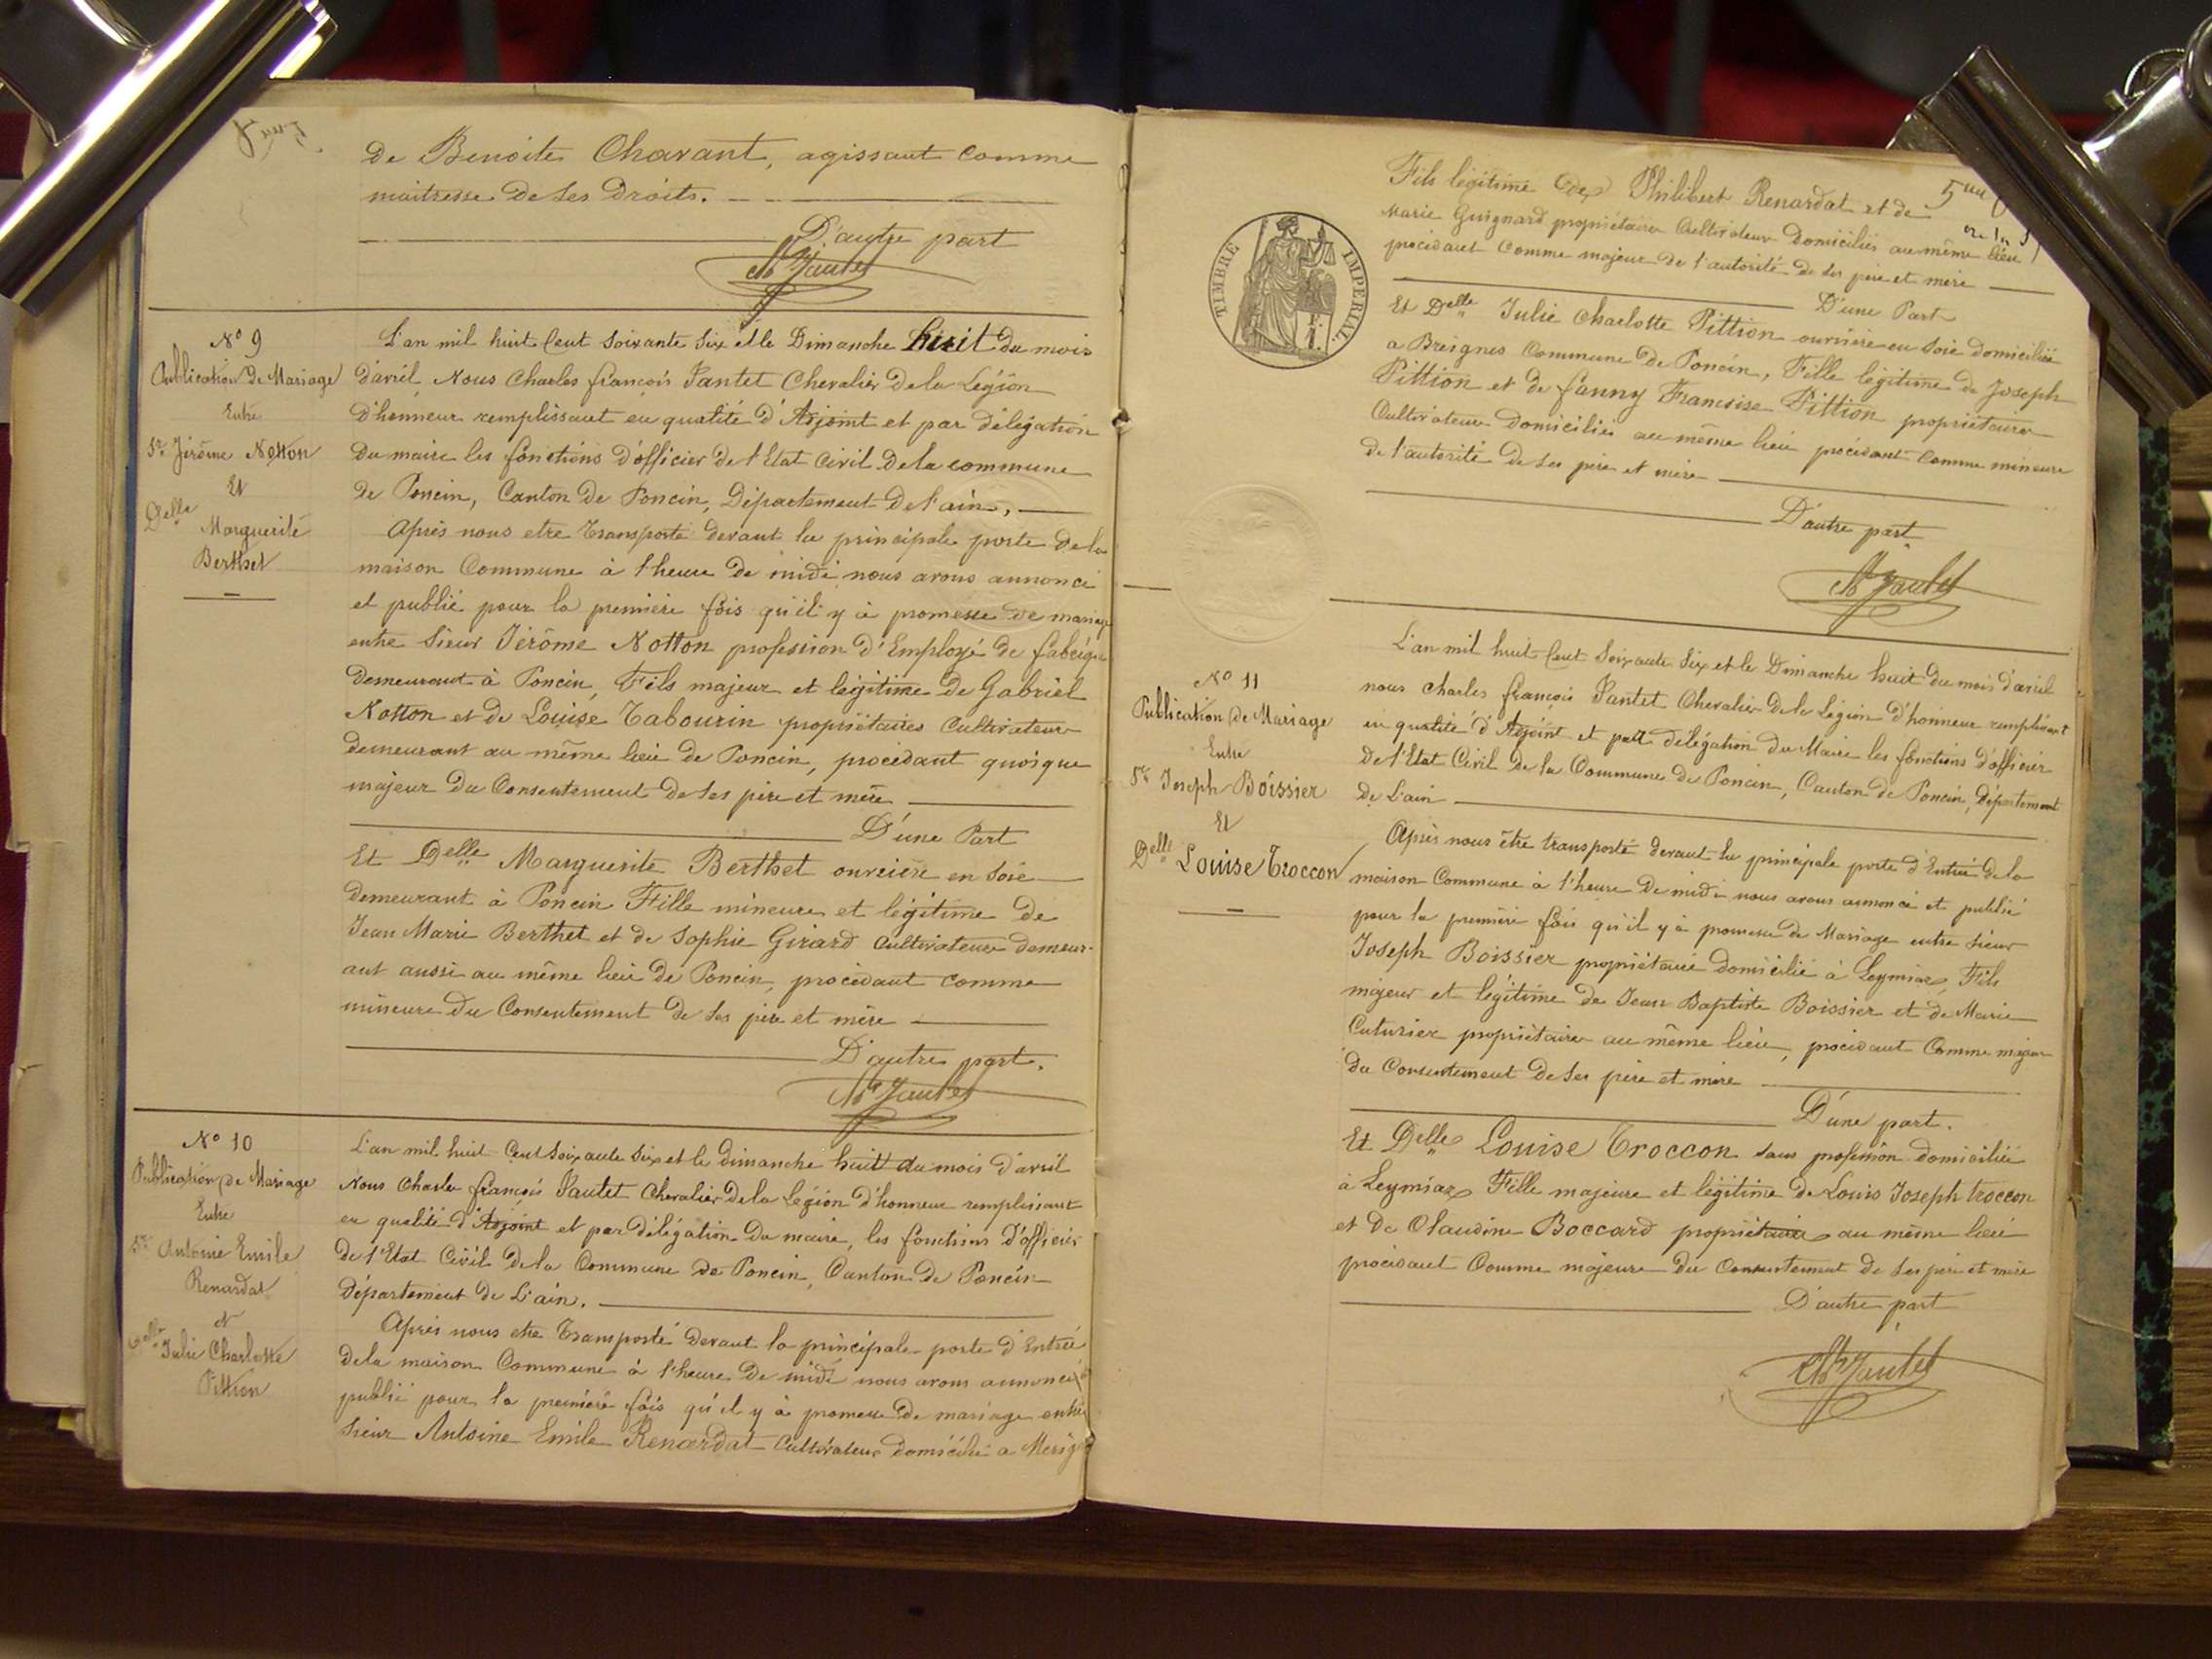 de Benoite Chavant, agissant comme
maitresse de ses droits.
D'autre part
Ch Jantet
Nº 9
Publication de Mariage
Entre
Sr Jérôme Notton
Et
Delle
Marguerite
Berthet
L'an mil huit Cent soixante six et le Dimanche huit du mois
d'avril Nous Charles françois Jantet Chevalier de la Légion
d'honneur remplissant en qualité d'Adjoint et par délégation
du maire les fonctions d'officier de l'Etat Civil de la commune
de Poncin, Canton de Poncin, Département de l'ain,
Après nous etre transporté devant la principale porte de la
maison Commune à l'heure de midi nous avons annoncé
et publié pour la première fois qu'il y à promesse de mariage
entre Sieur Jérôme Notton profession d'Employé de fabrique
demeurant à Poncin, Fils majeur et légitime de Gabriel
Notton et de Louise Tabourin propriétaires Cultivateurs
demeurant au même lieu de Poncin, procédant quoique
majeur du Consentement de ses père et mère
D'une Part
Et Delle Marguerite Berthet ouvrière en soie
demeurant à Poncin Fille mineure et légitime de
Jean Marie Berthet et de Sophie Girard Cultivateurs demeur-
ant aussi au même lieu de Poncin, procédant comme
mineure du Consentement de ses père et mère
D'autre part.
Ch Jantet
Nº 10
Publication de Mariage
Entre
Sr Antoine Emile
Renardat
et
Delle Julie Charlotte
Pittion
L'an mil huit Cent Soixante Six et le dimanche huit du mois d'avril
Nous Charles françois Jantet Chevalier de la Légion d'honneur remplissant
en qualité d'Adjoint et par délégation du maire, les fonctions d'officier
de l'Etat Civil de la Commune de Poncin, Canton de Poncin
département de L'ain.
Après nous etre Transporté devant la principale porte d'Entrée
de la maison Commune à l'heure de midi nous avons annoncé
publié pour la première fois qu'il y à promesse de mariage entre
Sieur Antoine Emile Renardat Cultivateur domicilié a
5
Fils légitime de Philibert Renardat et de
Marie Guignard propriétaires Cultivateurs domiciliés au même lieu
procédant Comme majeur de l'autorité de ses père et mère
D'une Part
TIMBRE IMPÉRIAL
Et Delle Julie Charlotte Pittion ouvrière en soie domiciliée
a Breignes Commune de Poncin, Fille légitime de Joseph
Pittion et de fanny Francoise Pittion propriétaires
Cultivateurs domiciliés au même lieu procédant Comme mineure
de l'autorité de ses père et mère
D'autre part
Ch Jantet
Nº 11
Publication de Mariage
Entre
Sr Joseph Boissier
Et
Delle Louise Troccon
L'an mil huit Cent Soixante Six et le Dimanche huit du mois d'avril
nous Charles françois Jantet Chevalier de la Légion d'honneur remplissant
en qualité d'Adjoint et par délégation du Maire les fonctions d'officier
de l'Etat Civil de la Commune de Poncin, Canton de Poncin, Département
de L'ain
Après nous être transporté devant la principale porte d'Entrée de la
maison Commune à l'heure de midi nous avons annoncé et publié
pour la première fois qu'il y à promesse de Mariage entre Sieur
Joseph Boissier propriétaire domicilié à Leymiaz, Fils
majeur et légitime de Jean Baptiste Boissier et de Marie
Cuturier propriétaires au même lieu, procédant Comme majeur
du Consentement de ses père et mère
D'une part.
Et Delle Louise Troccon sans profession domiciliée
à Leymiaz Fille majeure et légitime de Louis Joseph troccon
et de Claudine Boccard propriétaires au même lieu
procédant Comme majeure du Consentement de ses père et mère
D'autre part
Ch Jantet